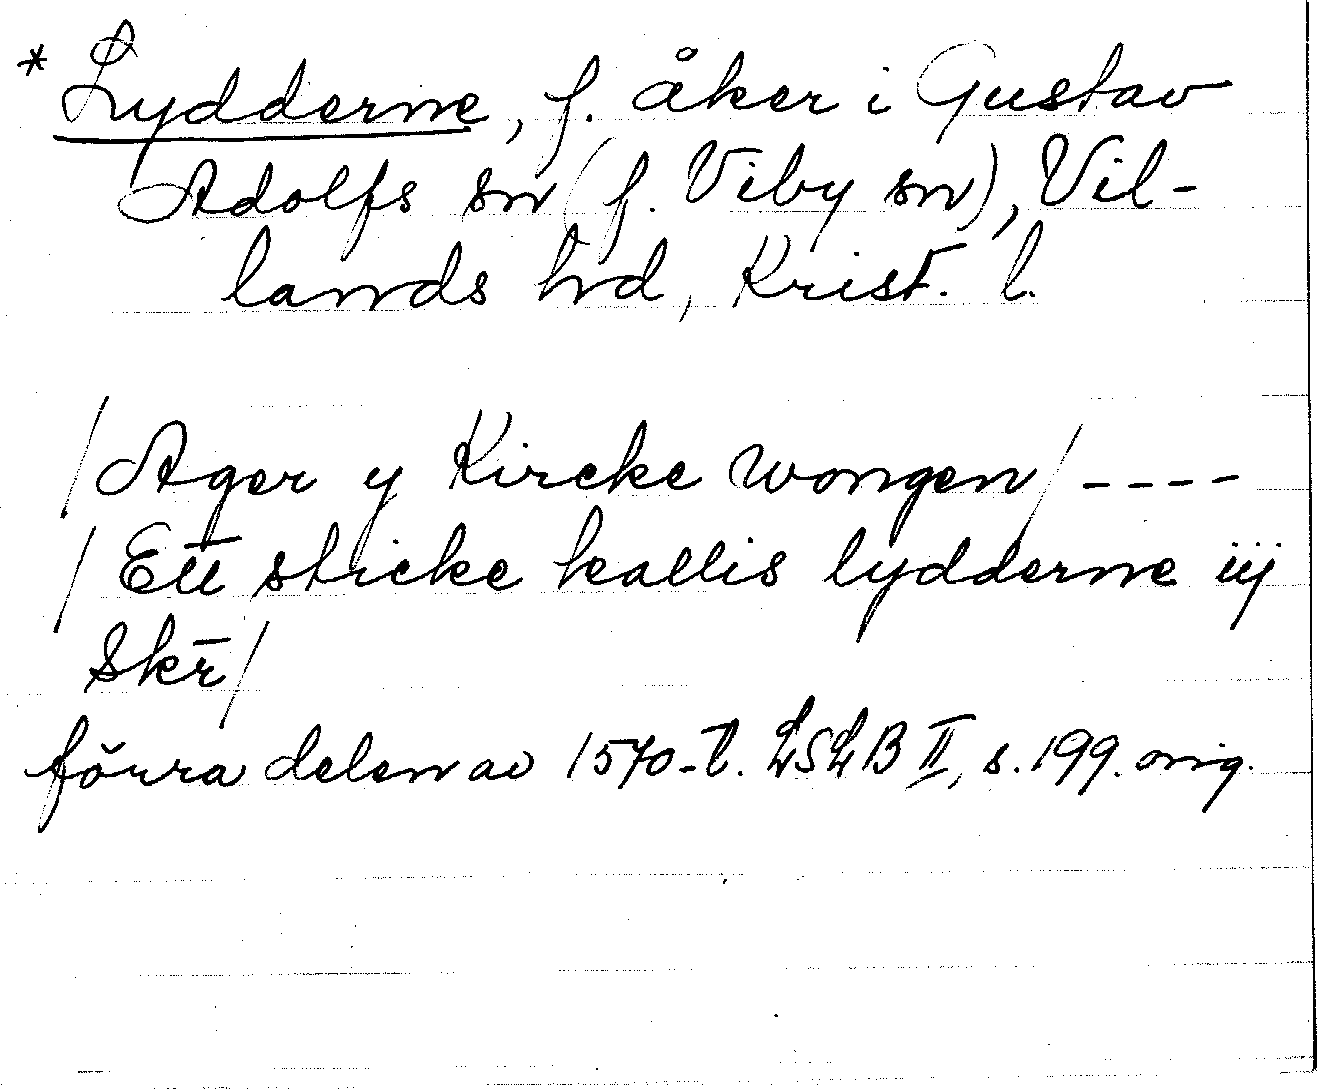 * Lydderne, f. åker i Gustav
Adolfs sn (f. Viby sn), Vil-
lands hd, Krist. l.
/Ager y Kircke wongen/ ----
/Ett sticke kallis lydderne iij
Skr̄/
förra delen av 1570-t. LSLB II, s. 199. orig.